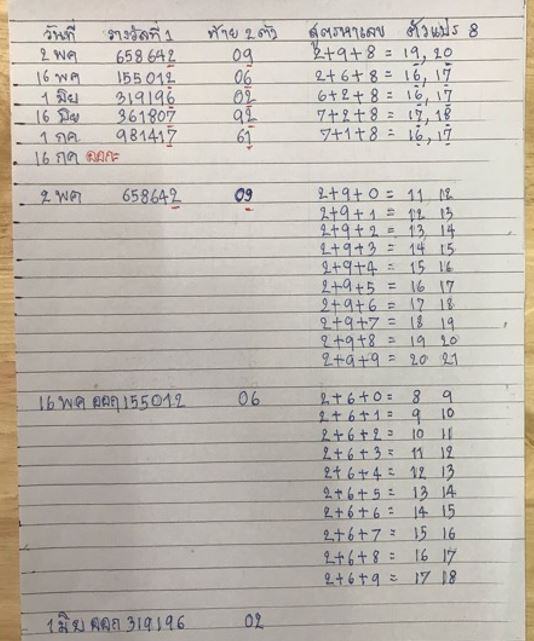 วันที่ รางวัลที่ 1 ท้าย 2 ตัว สูตรหาเลข ตัวแปร 8
2 พค 658642 09 2+9+8 = 19, 20
16 พค 155012 06 2+6+8 = 16, 17
1 มิย 319196 02 6+2+8 = 16, 17
16 มิย 361807 92 7+2+8 = 17, 18
1 กค 981417 61 7+1+8 = 16, 17
16 กค ออก
2 พค 658642 09 2+9+0 = 11 12
2+9+1 = 12 13
2+9+2 = 13 14
2+9+3 = 14 15
2+9+4 = 15 16
2+9+5 = 16 17
2+9+6 = 17 18
2+9+7 = 18 19
2+9+8 = 19 20
2+9+9 = 20 21
16 พค ออก 155012 06 2+6+0 = 8 9
2+6+1 = 9 10
2+6+2 = 10 11
2+6+3 = 11 12
2+6+4 = 12 13
2+6+5 = 13 14
2+6+6 = 14 15
2+6+7 = 15 16
2+6+8 = 16 17
2+6+9 = 17 18
1 มิย ออก 319196 02